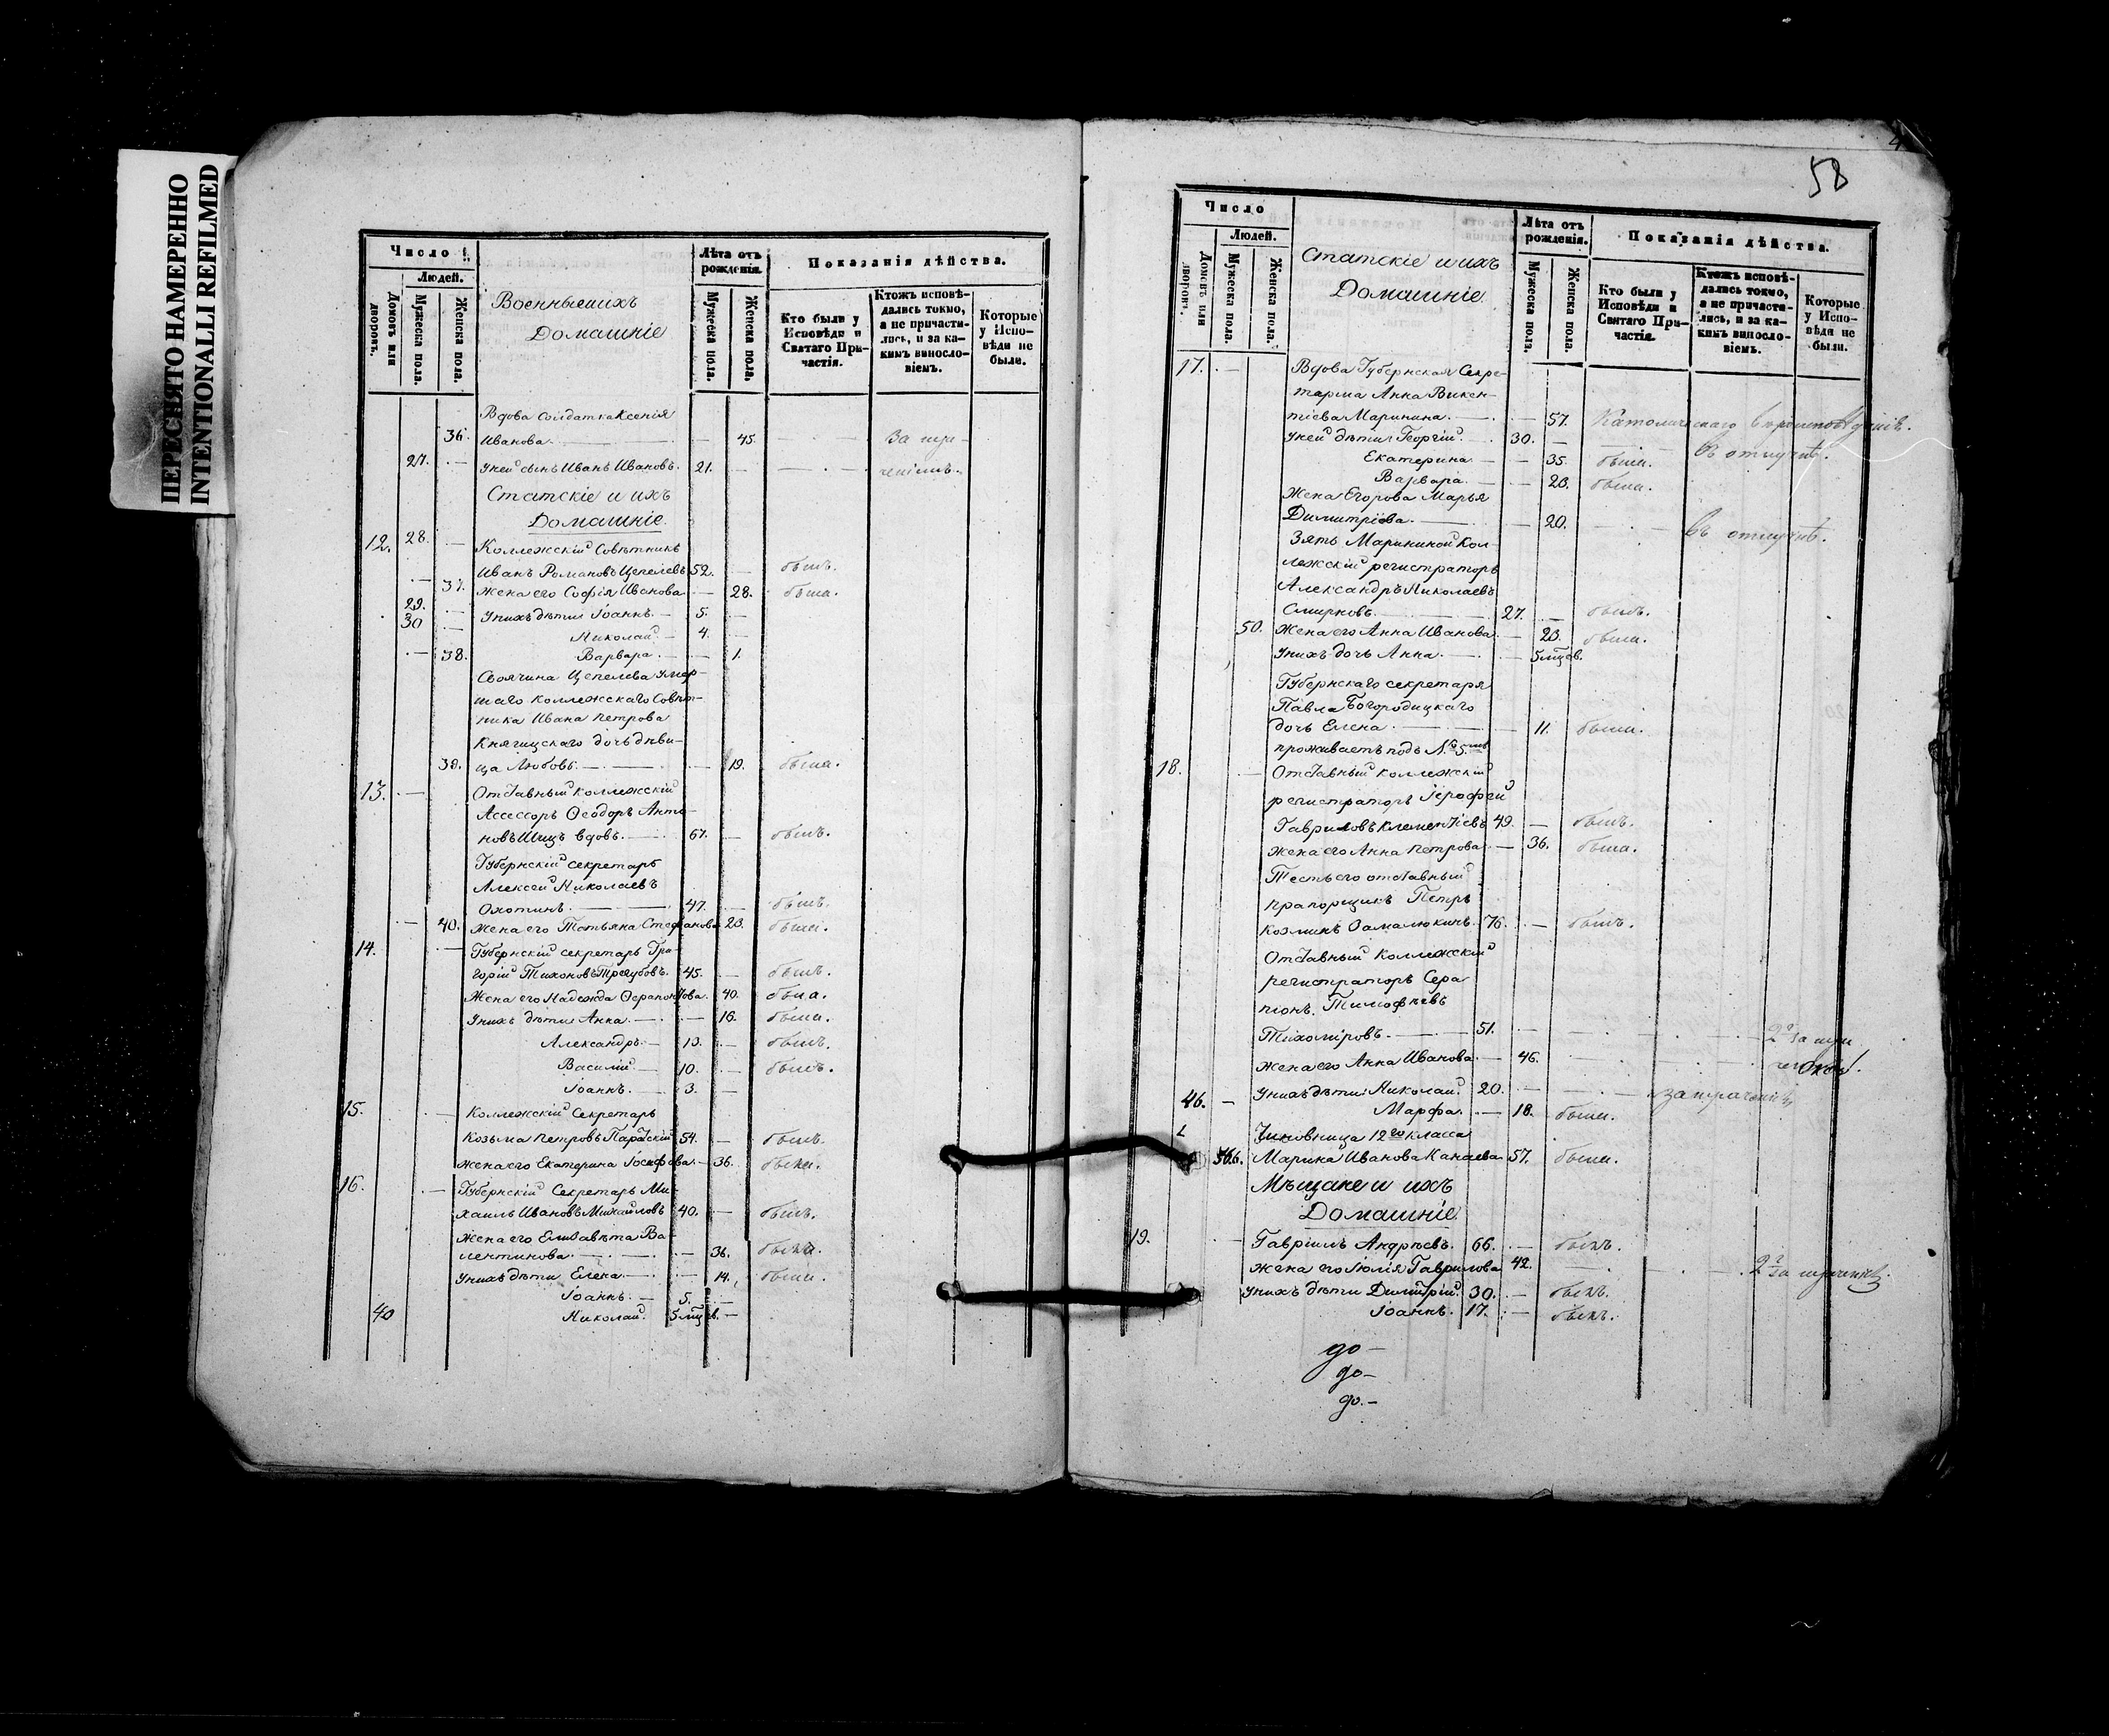 ПЕРЕСНЯТО НАМЕРЕННО
INTENTIONALLI REFILMED
Число
Людей.
Домовъ или дворовъ.
Мужеска пола.
Женска пола.
Военные ихъ
Домашніе
Лѣта отъ рожденія.
Мужеска пола.
Женска пола.
Показанія дѣйства.
Кто были у Исповѣди и Святаго Причастія.
Ктожъ исповѣдались токмо, а не причастились, и за какимъ винословіемъ.
Которые у Исповѣди не были.
Вдова солдатка Ксенія
36. Иванова. — 45. — За пре-
27. — У ней сынъ Иванъ Ивановъ. 21. —
Статскіе и ихъ
Домашніе.
12. 28. — Коллежскій Совѣтникъ
Иванъ Романовъ Цепелевъ 52. — былъ.
— 37. Жена его Софія Иванова — 28. была.
29. — У нихъ дѣти Іоаннъ. — 5. —
30 — Николай. — 4. —
— 38. Варвара. — 1.
Своячина Цепелева умер-
шаго Коллежскаго Совѣт-
ника Ивана Петрова
дочь дѣви-
39. ца Любовь. — 19. была.
13. — Отставный Коллежскій
Ассессоръ Ѳеодоръ Анто-
новъ Шицъ вдовъ. — 67. — былъ.
Губернскій Секретарь
Алексей Николаевъ
Охотинъ. — 47. — былъ.
— 40. Жена его Татьяна Стефанова 23. была.
14. — Губернскій секретарь Гри-
горій Тихоновъ Трегубовъ. 45. — былъ.
Жена его Надежда Ѳерапонтова. 40. была.
У нихъ дѣти Анна. — 16. была.
Александръ. — 13. — былъ.
Василій. — 10. — былъ.
Іоаннъ. — 3. —
15. — Коллежскій Секретарь
Козьма Петровъ 54. — былъ.
Жена его Екатерина Іосифова. — 36. была.
16. — Губернскій Секретарь Ми-
хаилъ Ивановъ Михайловъ 40. — былъ.
Жена его Елисавета Ва-
лентинова. — 36. была.
У нихъ дѣти Елена. — 14. была.
Іоаннъ. — 5. —
40 Николай. 5 мцѣв. —
58
Число
Людей.
Домовъ или дворовъ.
Мужеска пола.
Женска пола.
Статскіе и ихъ
Домашніе.
Лѣта отъ рожденія.
Мужеска пола.
Женска пола.
Показанія дѣйства.
Кто были у Исповѣди и Святаго Причастія.
Ктожъ исповѣдались токмо, а не причастились, и за какимъ винословіемъ.
Которые у Исповѣди не были.
17. — Вдова Губернская Секре-
тарша Анна Викен-
тіева Маринина. — 57. Католическаго вѣроисповѣданія.
У ней дѣти Георгій. 30. — въ отлучкѣ.
Екатерина. — 35. была.
Варвара. — 23. была.
Жена Егорова Марья
Димитріева. — 20. — въ отлучкѣ.
Зять Марининой Кол-
лежскій регистраторъ
Александръ Николаевъ
Смирновъ. — 27. — былъ.
50. Жена его Анна Иванова. — 23. была.
У нихъ дочь Анна. — 5 мцѣв.
Губернскаго секретаря
Павла Богородицкаго
дочь Елена. — 11. была.
проживаетъ подъ № 5.
18. — Отставный Коллежскій
регистраторъ Іерофей
Гавриловъ Клементіевъ 49. — былъ.
Жена его Анна Петрова. — 36. была.
Тесть его отставный
прапорщикъ Петръ
Козминъ 76. — былъ.
Отставный Коллежскій
регистраторъ Сера
піонъ. Тимофѣевъ
Тихоміровъ. — 51. —
Жена его Анна Иванова. — 46. —
46. — У нихъ дѣти Николай. 20. —
Марфа. — 18. была.
Чиновница 12го класса
Марина Иванова Канаева. 57. была.
Мѣщане и ихъ
Домашніе.
19. — Гавріилъ Андрѣевъ. 66. — былъ.
Жена его Юлія Гаврилова 42. —
У нихъ дѣти Димитрій. 30. — былъ.
Іоаннъ. 17. — былъ.
до —
до —
до. —